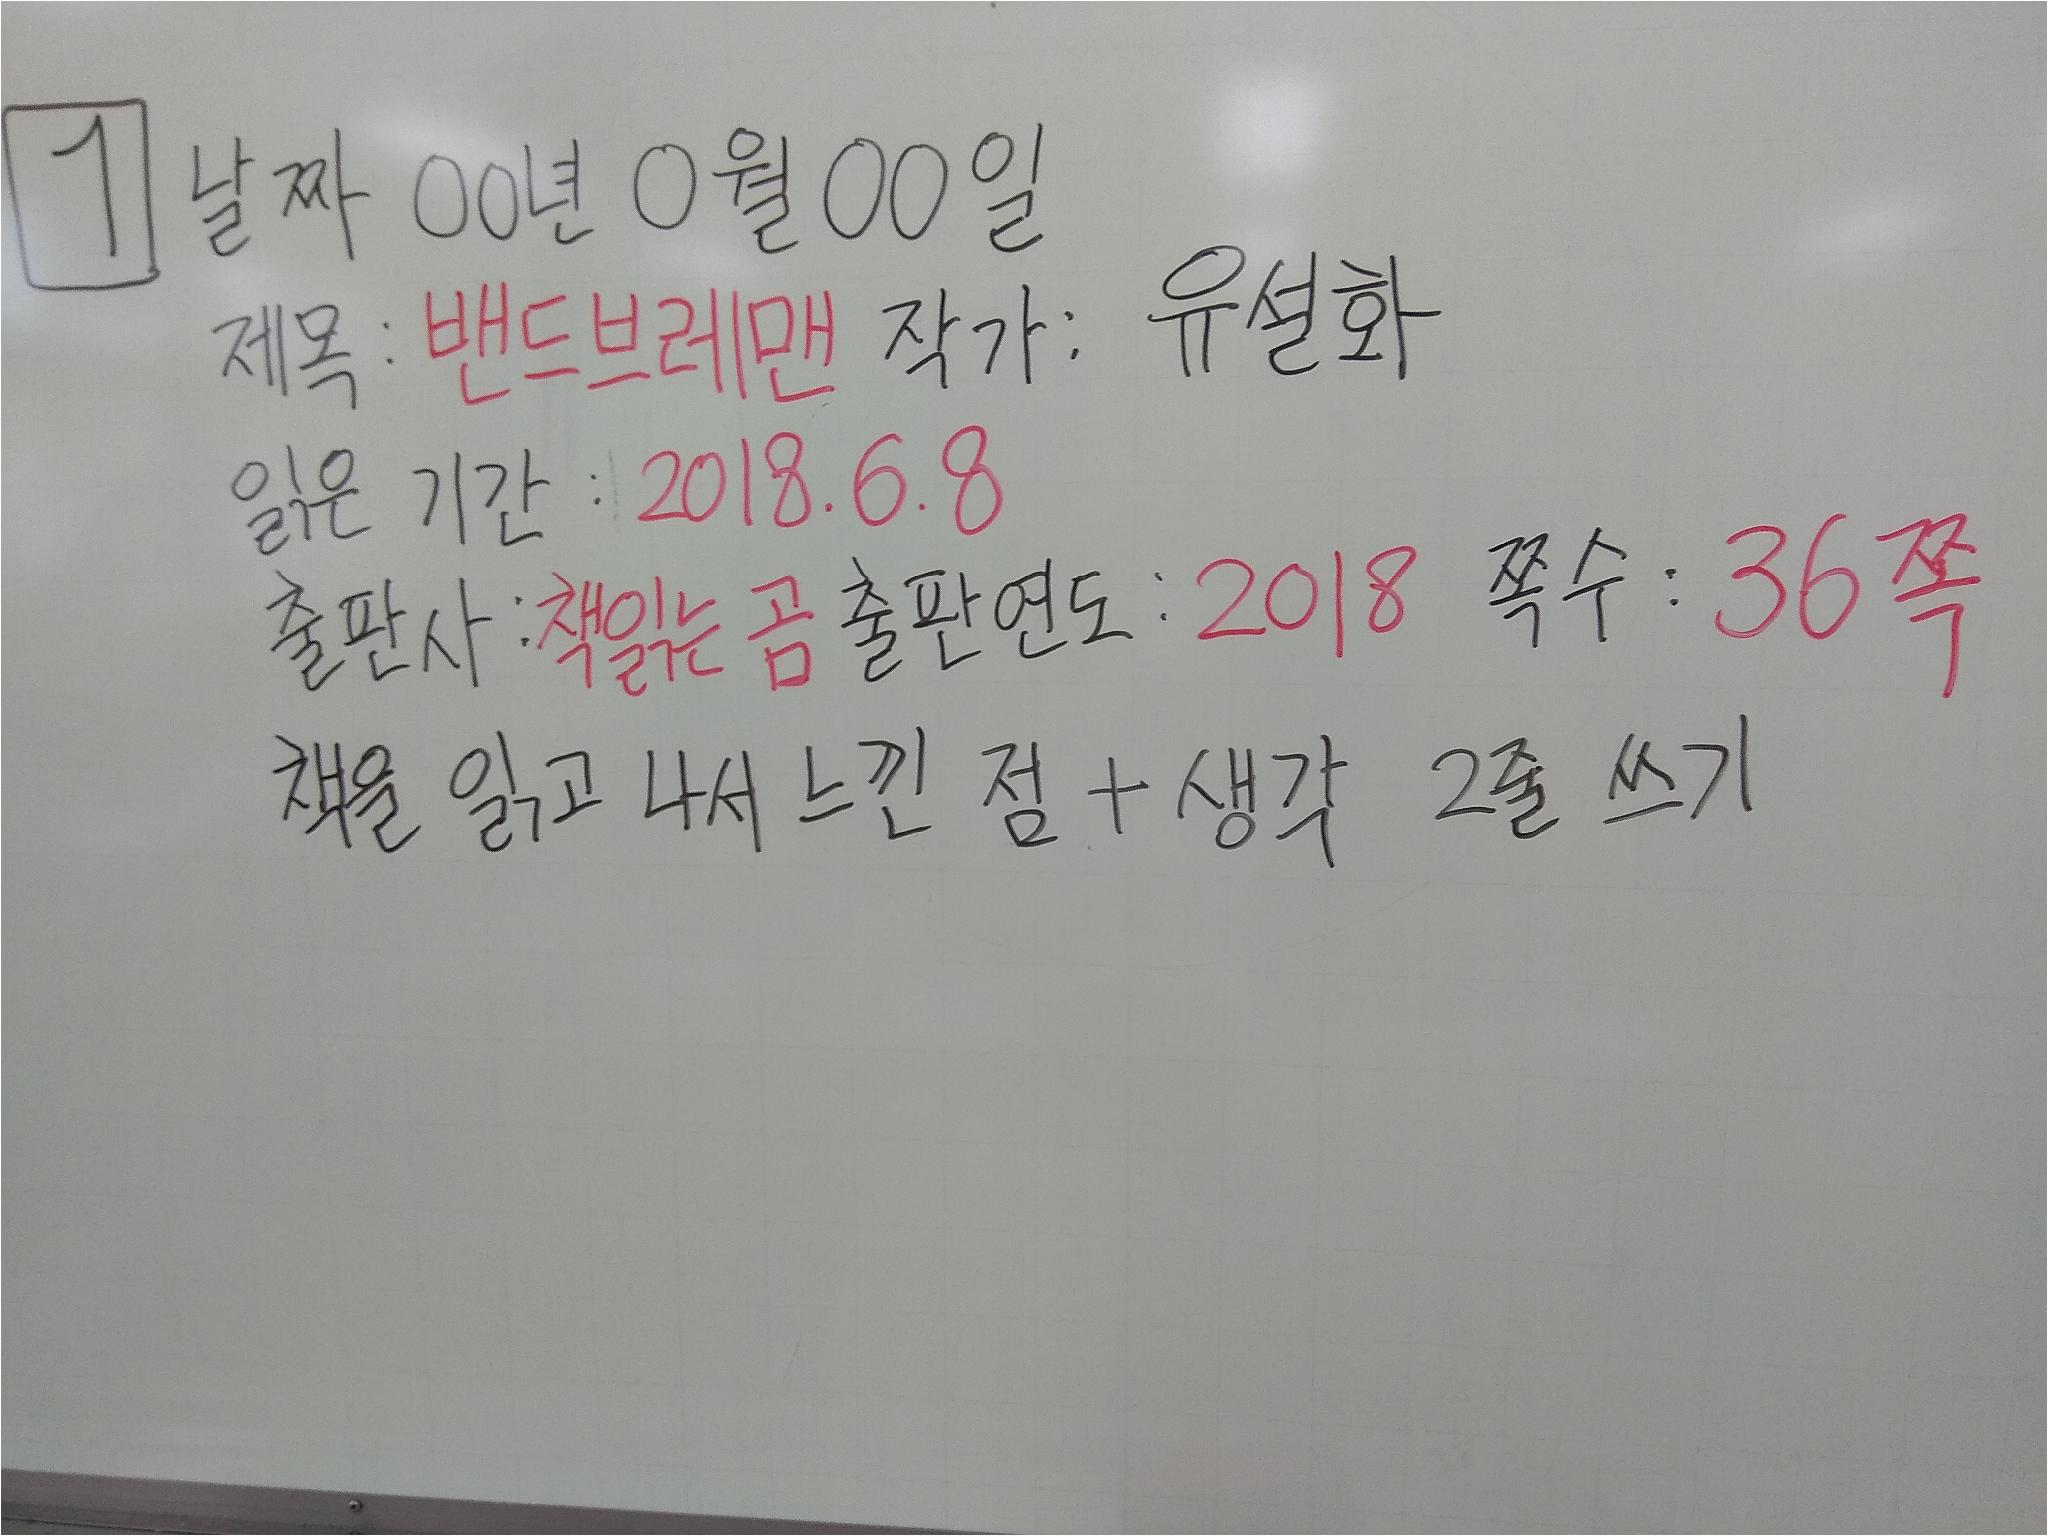 1 날짜 00년 0월 00일
제목: 밴드브레맨 작가: 유설화
읽은 기간: 2018.6.8
출판사:책읽는 곰 출판연도: 2018 쪽수: 36쪽
책을 읽고 나서 느낀 점 + 생각 2줄 쓰기